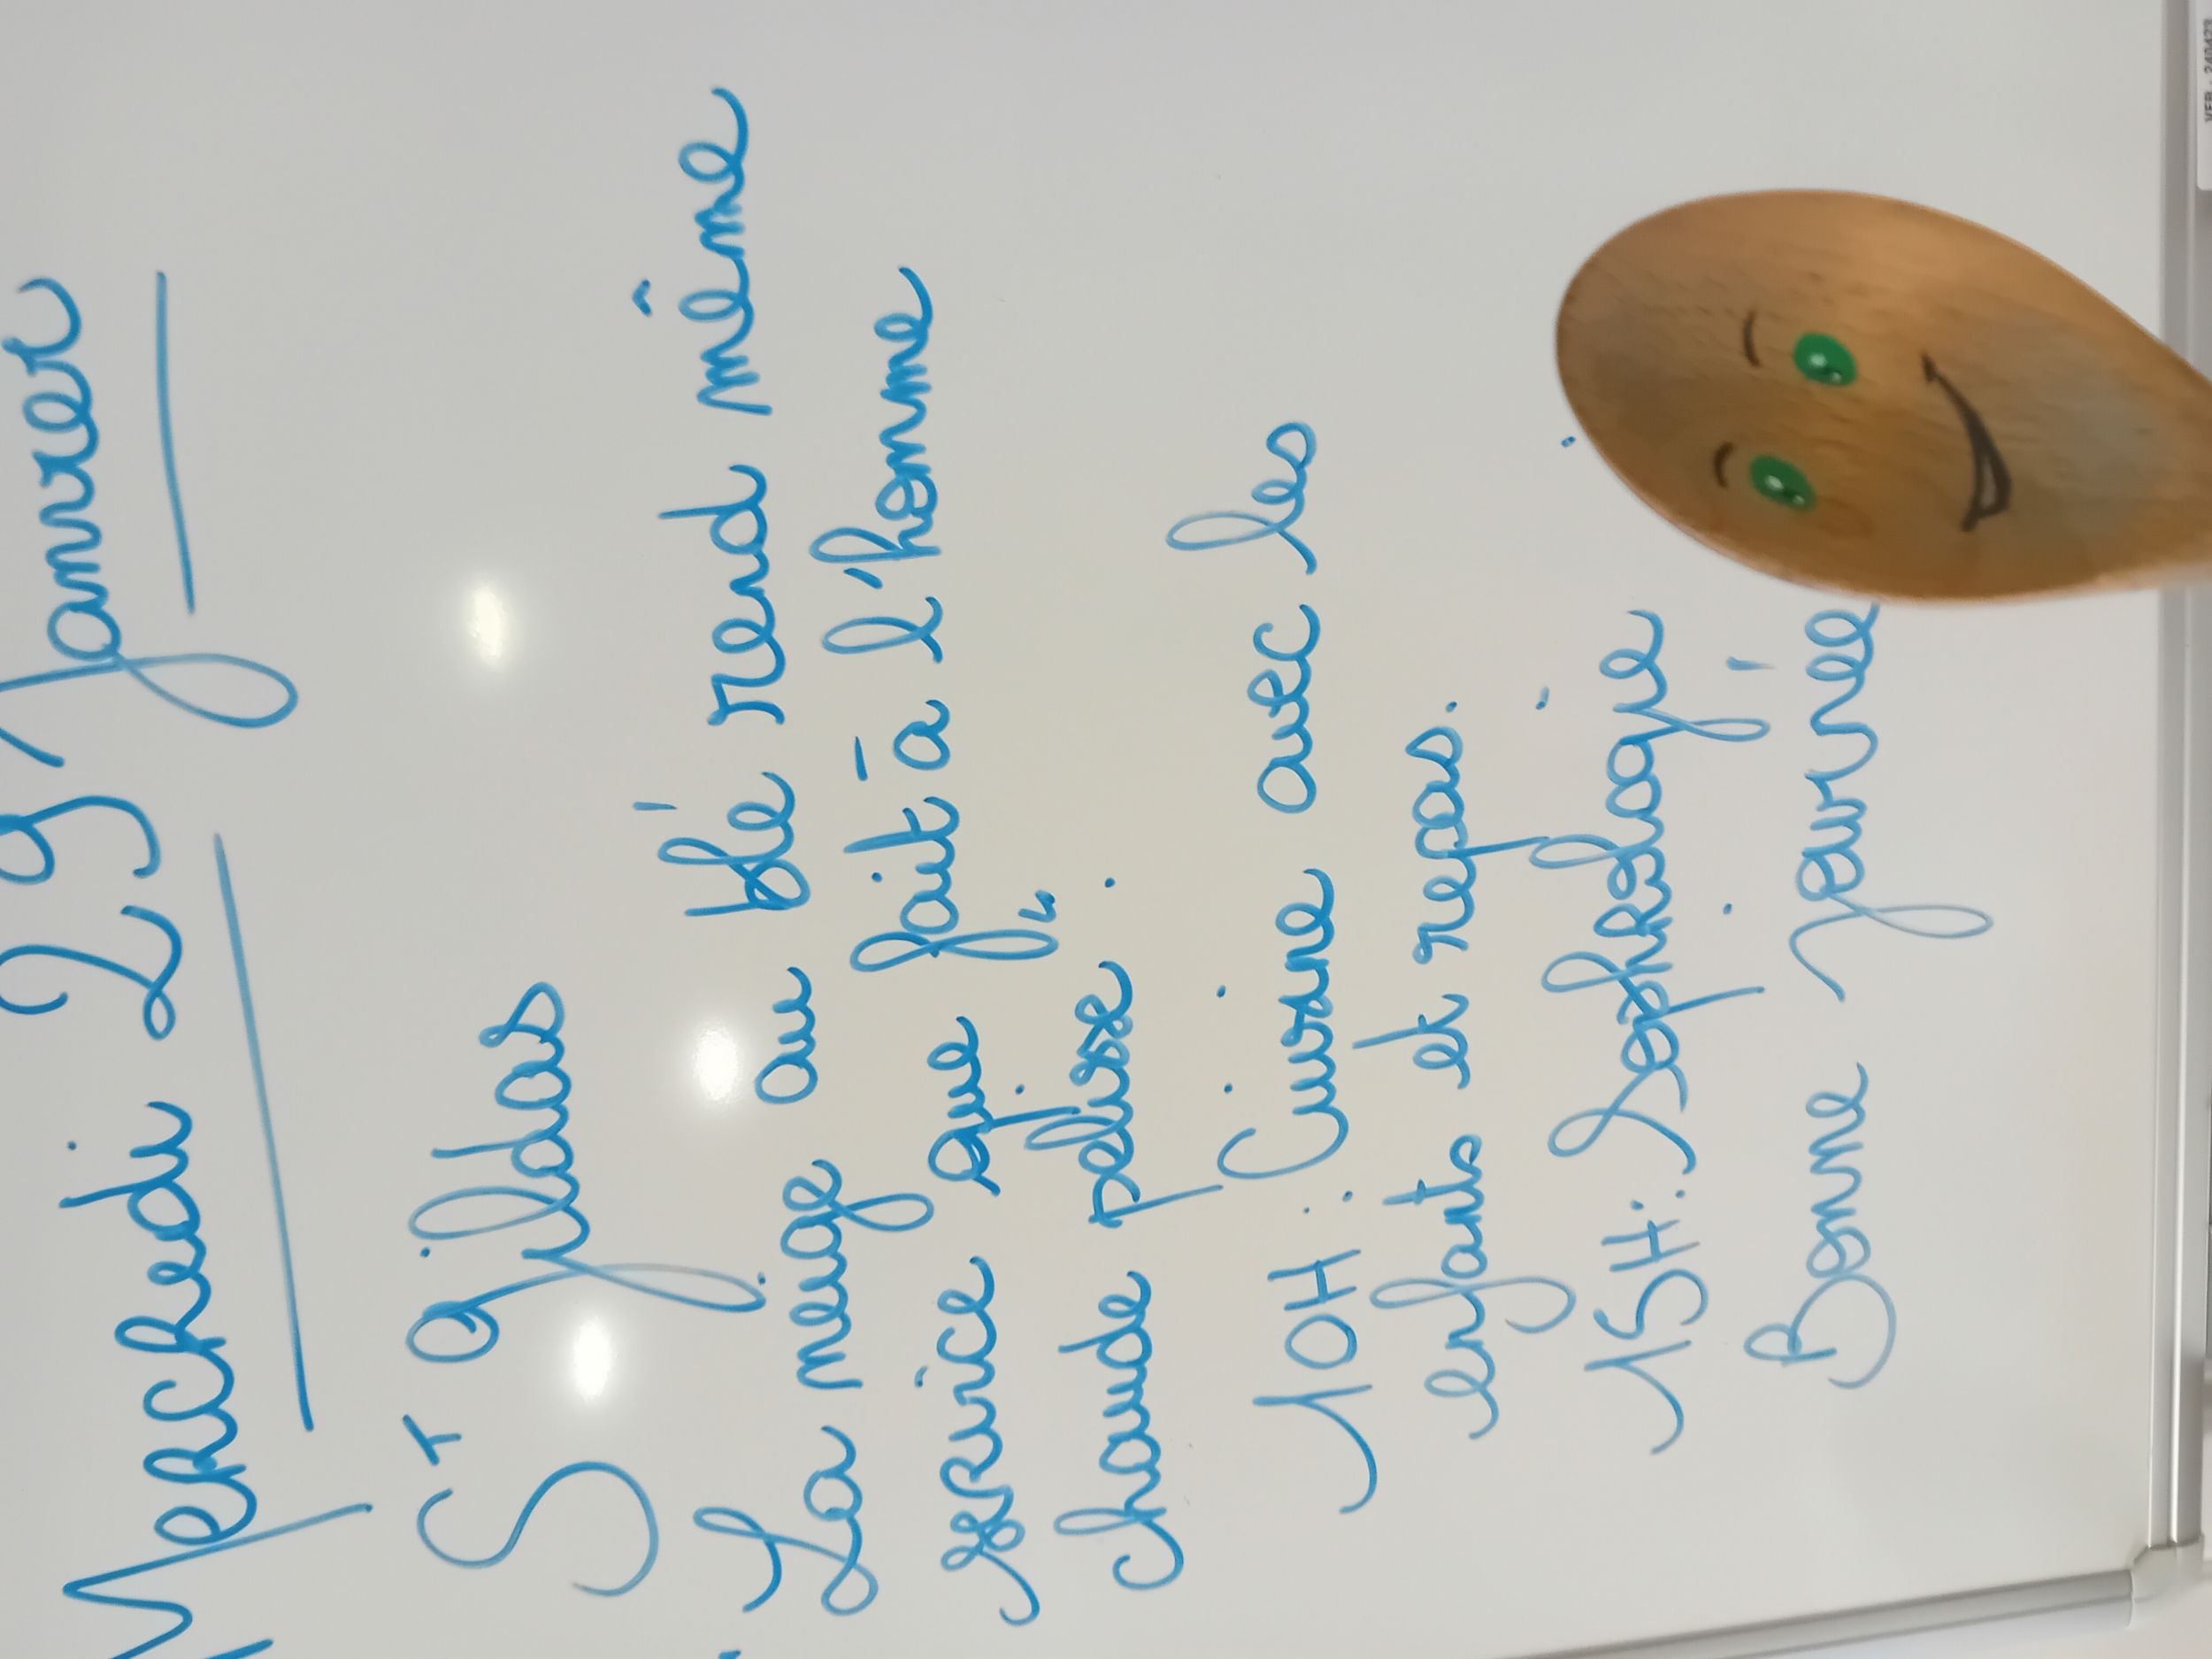 Mercredi 29 Janvier
St gildas
"La neige au blé rend même
service que fait à l'homme
chaude pelisse".
10H : Cuisine avec les
enfants et repas.
15H : Sophrologie
Bonne journée